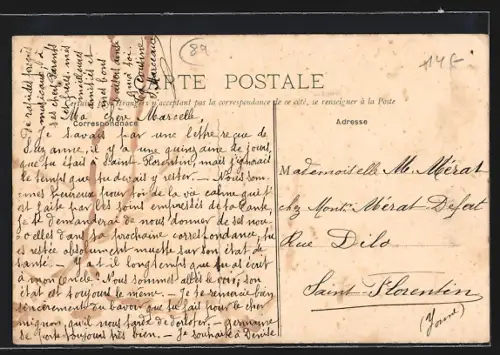 89
14 f
CARTE POSTALE
n'acceptant pas la correspondance de ce côté, se renseigner à la Poste
Correspondance
Adresse
Ma chère Marcelle,
Je savais par une lettre reçue de
Suzanne, il y a une quinzaine de jours,
que tu étais à Saint-Florentin, mais j'ignorais
le temps que tu devais y rester. — Nous som-
mes heureux pour toi de la vie calme qui t'est
faite par les soins empressés de ta Tante,
je te demanderai de nous donner de ses nou-
velles dans ta prochaine correspondance, tu
es restée absolument muette sur son état de
santé. — Y a-t-il longtemps que tu as écrit
à mon Oncle? Nous sommes allés le voir, son
état est toujours le même. — Je te remercie bien
sincèrement du bavoir que tu fais pour le cher
mignon, qu'il nous tarde de dorloter. — Germaine
se porte toujours très bien. — Je souhaite à Denise
meilleures
amitiés et
mes bons
Mademoiselle M. Mérat
chez Mons. Mérat Defert
Rue Dilo
Saint-Florentin
(Yonne)